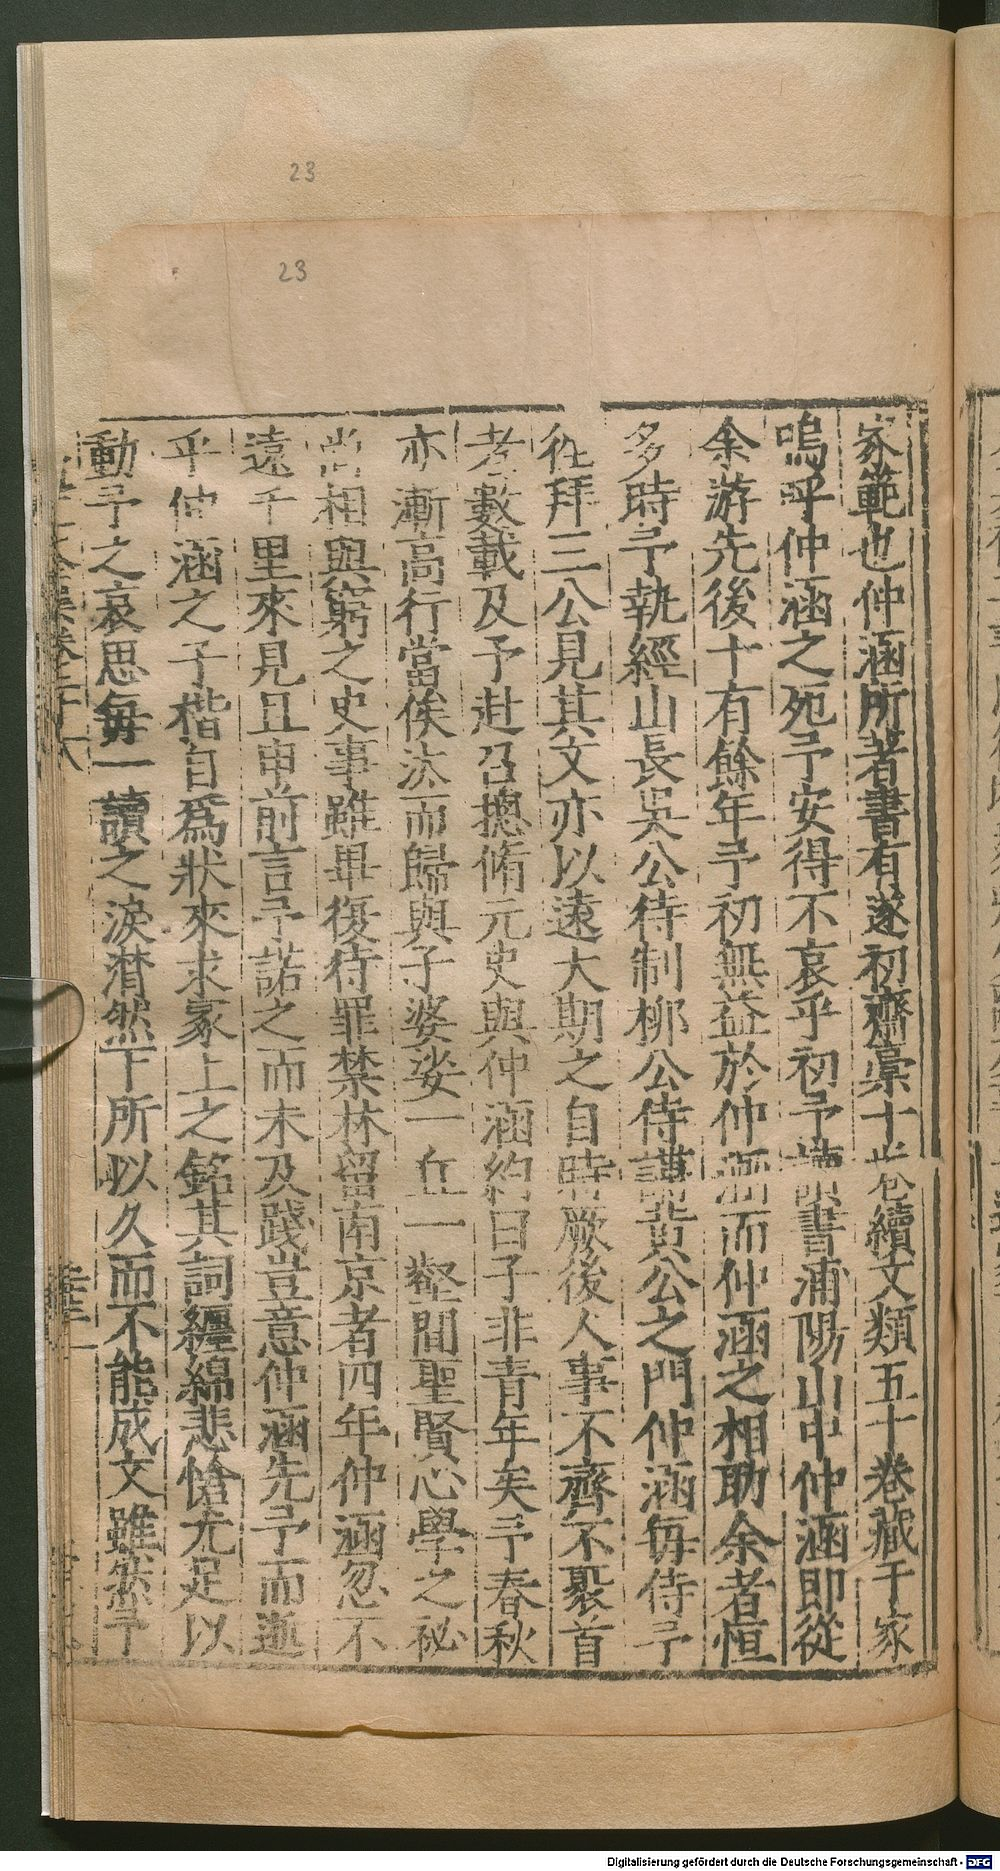 23
23
家範也仲涵所著書有遂初齋稾十卷續文類五十卷藏于家
嗚呼仲涵之死予安得不哀乎初予讀書浦陽山中仲涵即從
余游先後十有餘年予初無益於仲涵而仲涵之相助余者恒
多時予執經山長吳公待制柳公侍講黃公之門仲涵每侍予
徃拜三公見其文亦以遠大期之自時厥後人事不齊不褧首
者數載及予赴召揔脩元史與仲涵約曰子非青年矣予春秋
亦漸高行當俟汝而歸與子婆娑一丘一壑間聖賢心學之祕
尚相與窮之史事雖畢復待罪禁林留南京者四年仲涵忽不
遠千里來見且申前言予諾之而未及踐豈意仲涵先予而逝
乎仲涵之子楷自爲狀來求冡上之銘其詞纏綿悲愴尤足以
動予之哀思每一讀之淚潸然下所以久而不能成文雖然予
卷二十八
Digitalisierung gefördert durch die Deutsche Forschungsgemeinschaft - DFG